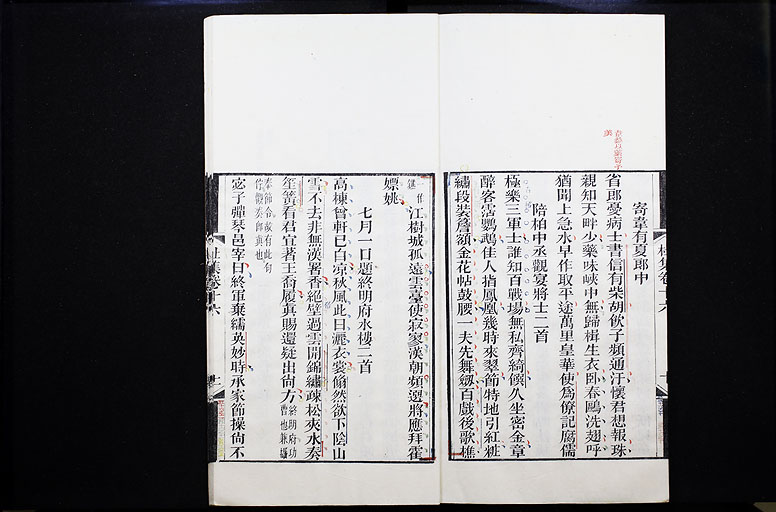 寄韋有夏郎中
省郎憂病士書信有柴胡飲子頻通汗懷君想報珠
親知天畔少藥味峽中無歸楫生衣臥春鷗洗翅呼
猶聞上急水早作取平途萬里皇華使為僚記腐儒
陪柏中丞觀宴將士二首
極樂三軍士誰知百戰場無私齊綺饌久坐密金章
醉客霑鸚鵡佳人指鳳凰幾時來翠節特地引紅粧
繡段裝簷額金花帖鼓腰一夫先舞劔百戲後歌樵
江樹城孤遠雲臺使寂寥漢朝頻選將應拜霍
嫖姚
七月一日題終明府水樓二首
高棟曾軒已自凉秋風此日灑衣裳翛然欲下陰山
雪不去非無漢署香絕壁過雲開錦繡疎松夾水奏
笙簧看君宜著王喬履真賜還疑出尚方
終明府功
曹也兼攝
奉節令故有此句
宓子彈琴邑宰日終軍棄繻英妙時承家節操尚不
杜集卷十六